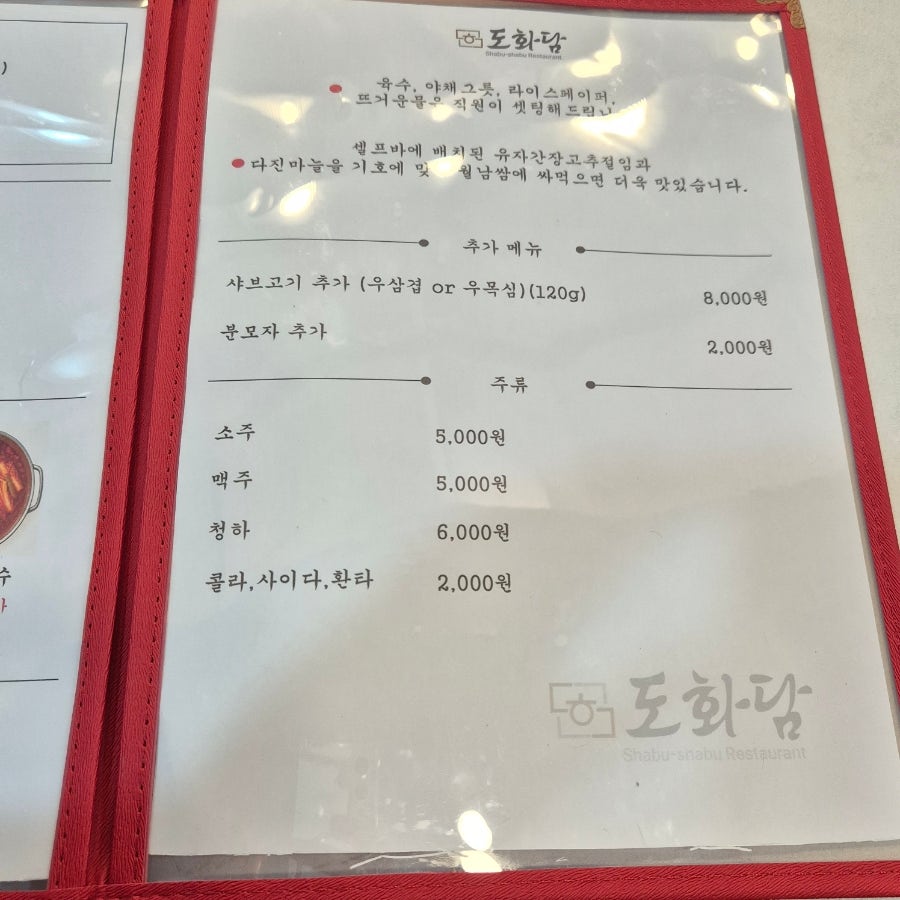 도화담
Shabu-shabu Restaurant
육수, 야채그릇, 라이스페이퍼,
뜨거운물은 직원이 셋팅해드립니
셀프바에 배치된 유자간장고추절임과
다진마늘을 기호에 맞 월남쌈에 싸먹으면 더욱 맛있습니다.
추가 메뉴
샤브고기 추가 (우삼겹 or 우목심)(120g) 8,000원
분모자 추가 2,000원
주류
소주 5,000원
맥주 5,000원
청하 6,000원
콜라,사이다,환타 2,000원
수
도화담
Shabu-shabu Restaurant